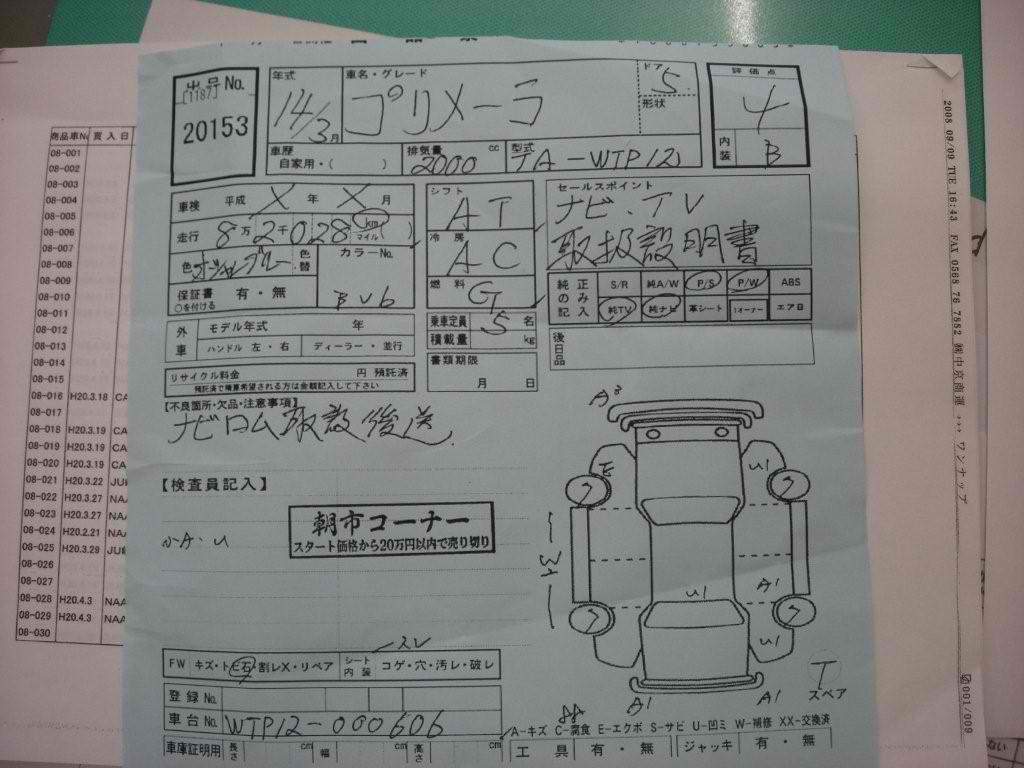 出号No.
[1187]
20153
年式
14/3月
車名・グレード
プリメーラ
ドア
5
形状
評価点
4
内装
B
車歴
自家用・( )
排気量
2000 cc
型式
TA-WTP12
車検 平成 X 年 X 月
走行 8万2千028 km マイル ( )
色 オーシャンブルー 色替
カラーNo.
BV6
保証書 有・無
○を付ける
シフト
AT
冷房
AC
燃料
G
乗車定員 5 名
積載量 kg
書類期限
月 日
セールスポイント
ナビ.TV
取扱説明書
純正のみ記入
S/R 純A/W P/S P/W ABS
純TV 純ナビ 革シート 1オーナー エアB
後日品
外車
モデル年式 年
ハンドル 左・右 ディーラー・並行
リサイクル料金 円 預託済
預託済で精算希望される方は金額記入して下さい
【不良箇所・欠品・注意事項】
ナビロム取説後送
【検査員記入】
小A.U
朝市コーナー
スタート価格から20万円以内で売り切り
A3
E
U1
7
7
31
U1
A1
7
7
U1
A1
A1
T
スペア
スレ
FW キズ・トビ石・割レX・リペア シート内装 コゲ・穴・汚レ・破レ
登録No.
車台No. WTP12-000606
車庫証明用 長さ cm 幅 cm 高さ cm
A-キズ C-腐食 E-エクボ S-サビ U-凹ミ W-補修 XX-交換済
工具 有・無 ジャッキ 有・無
商品車No 買入日
08-001
08-002
08-003
08-004
08-005
08-006
08-007
08-008
08-009
08-010
08-011
08-012
08-013
08-014
08-015
08-016 H20.3.18 CA
08-017
08-018 H20.3.19 CA
08-019 H20.3.19 CA
08-020 H20.3.19 CA
08-021 H20.3.22 JU
08-022 H20.3.27 NAA
08-023 H20.3.27 NAA
08-024 H20.2.21 NAA
08-025 H20.3.29 JU
08-026
08-027
08-028 H20.4.3 NAA
08-029 H20.4.3 NAA
08-030
2008 09/09 TUE 16:43 FAX 0568 76 7552 ㈱中京商運 →→→ ワンナップ
001/009
ない